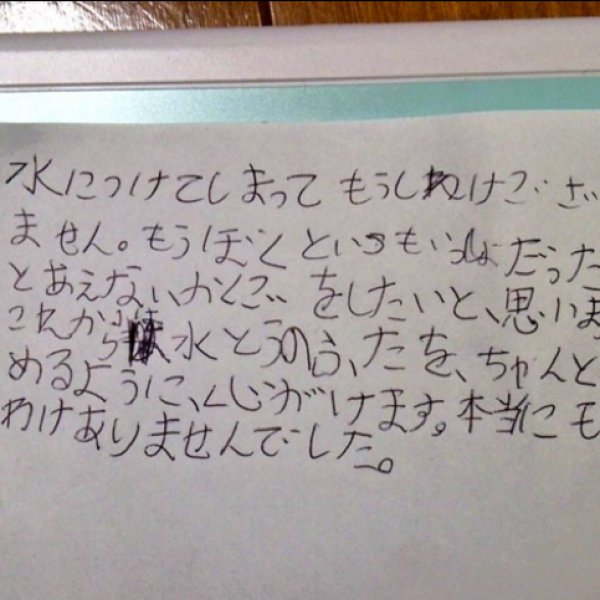 水につけてしまって もうしわけござい
ません。もうぼくといつもいっしょだった
とあえないかくごをしたいと、思いま
これから 水とうのふたを、ちゃんと
めるように、くじがけます。本当にも
わけありませんでした。